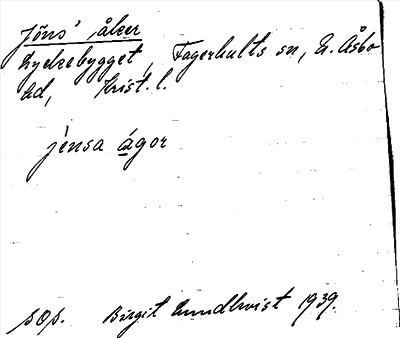 Jöns' åker
Lyckebygget, Fagerhults sn, N. Åsbo
hd, Krist. l.
jènsa ágor
sop. Birgit Lundkvist 1939.